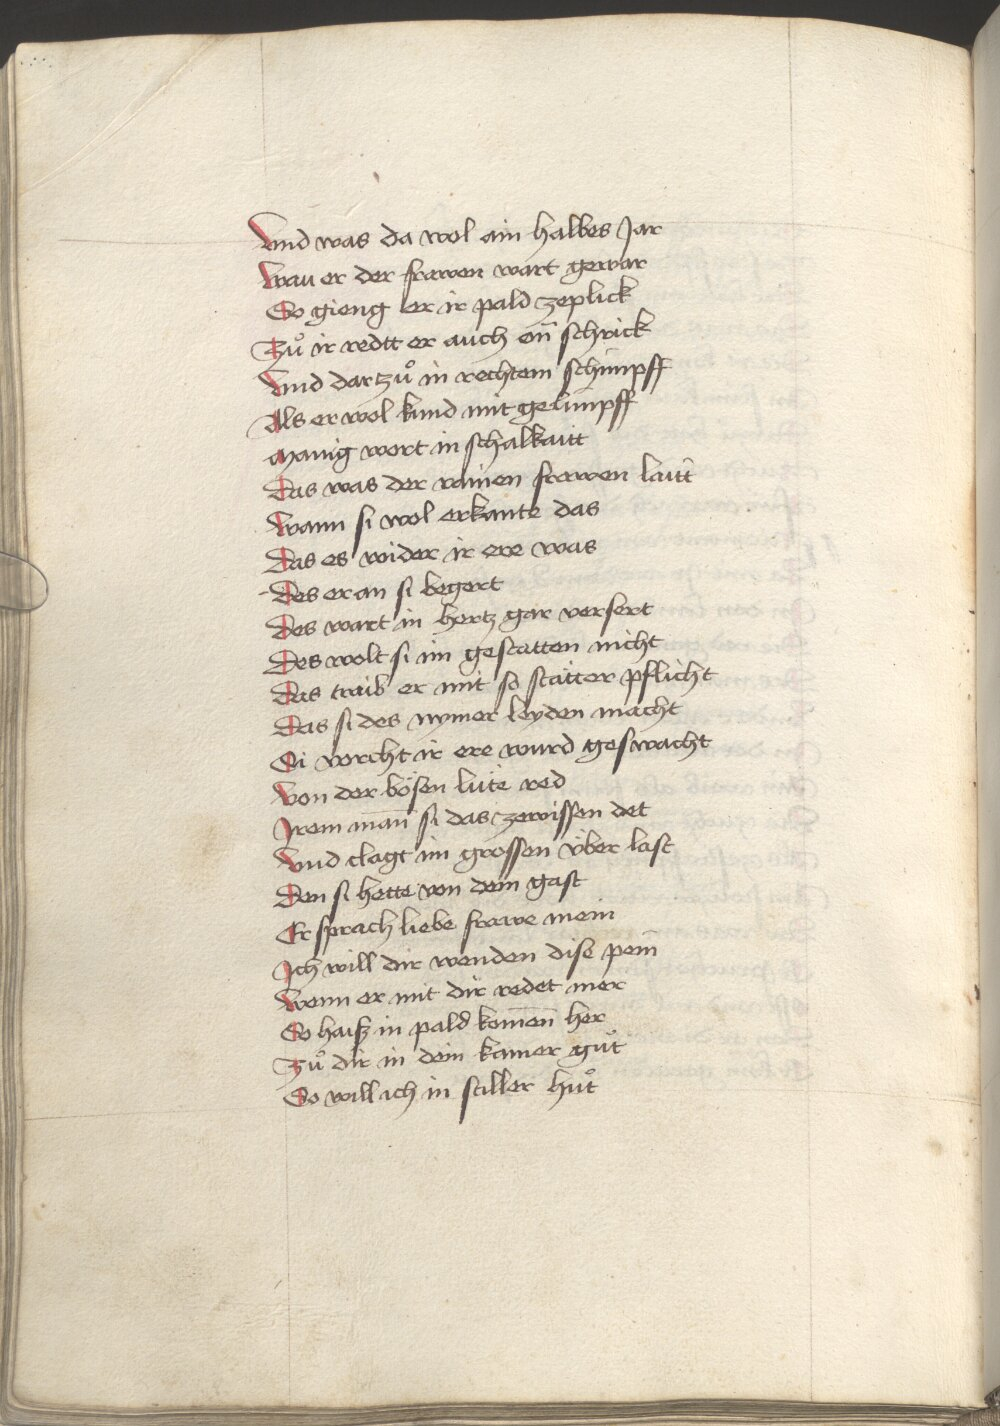 Vnd was da wol ain halbes Jar
Wau er der frawen wart gewar
So gieng er ir pald zeplick
Zů ir redtt er auch on̄ schrick
Vnd dartzů in rechtem schimpff
Als er wol kund mit gelimpff
Manig wort in schalkaitt
Das was der rainen frawen laitt
Wann si wol erkante das
Das es wider ir ere was
Des er an si begert
Des wart in hertz gar versert
Des wolt si im gestatten nicht
Das traib er mit so stätter pflicht
Das si des nymer leyden macht
Si vorcht ir ere wurd geswacht
Von der bösen lüte red
Irem man̄ si das zewissen det
Vnd clagt im grossen über last
Den si hette von dem gast
Er sprach liebe frawe mein
Ich will dir wenden dise pein̄
Wenn er mit dir redet mer
So haisz in pald kom̄en̄ her
Zů dir in dein kamer gůt
So will ich in stiller hůt